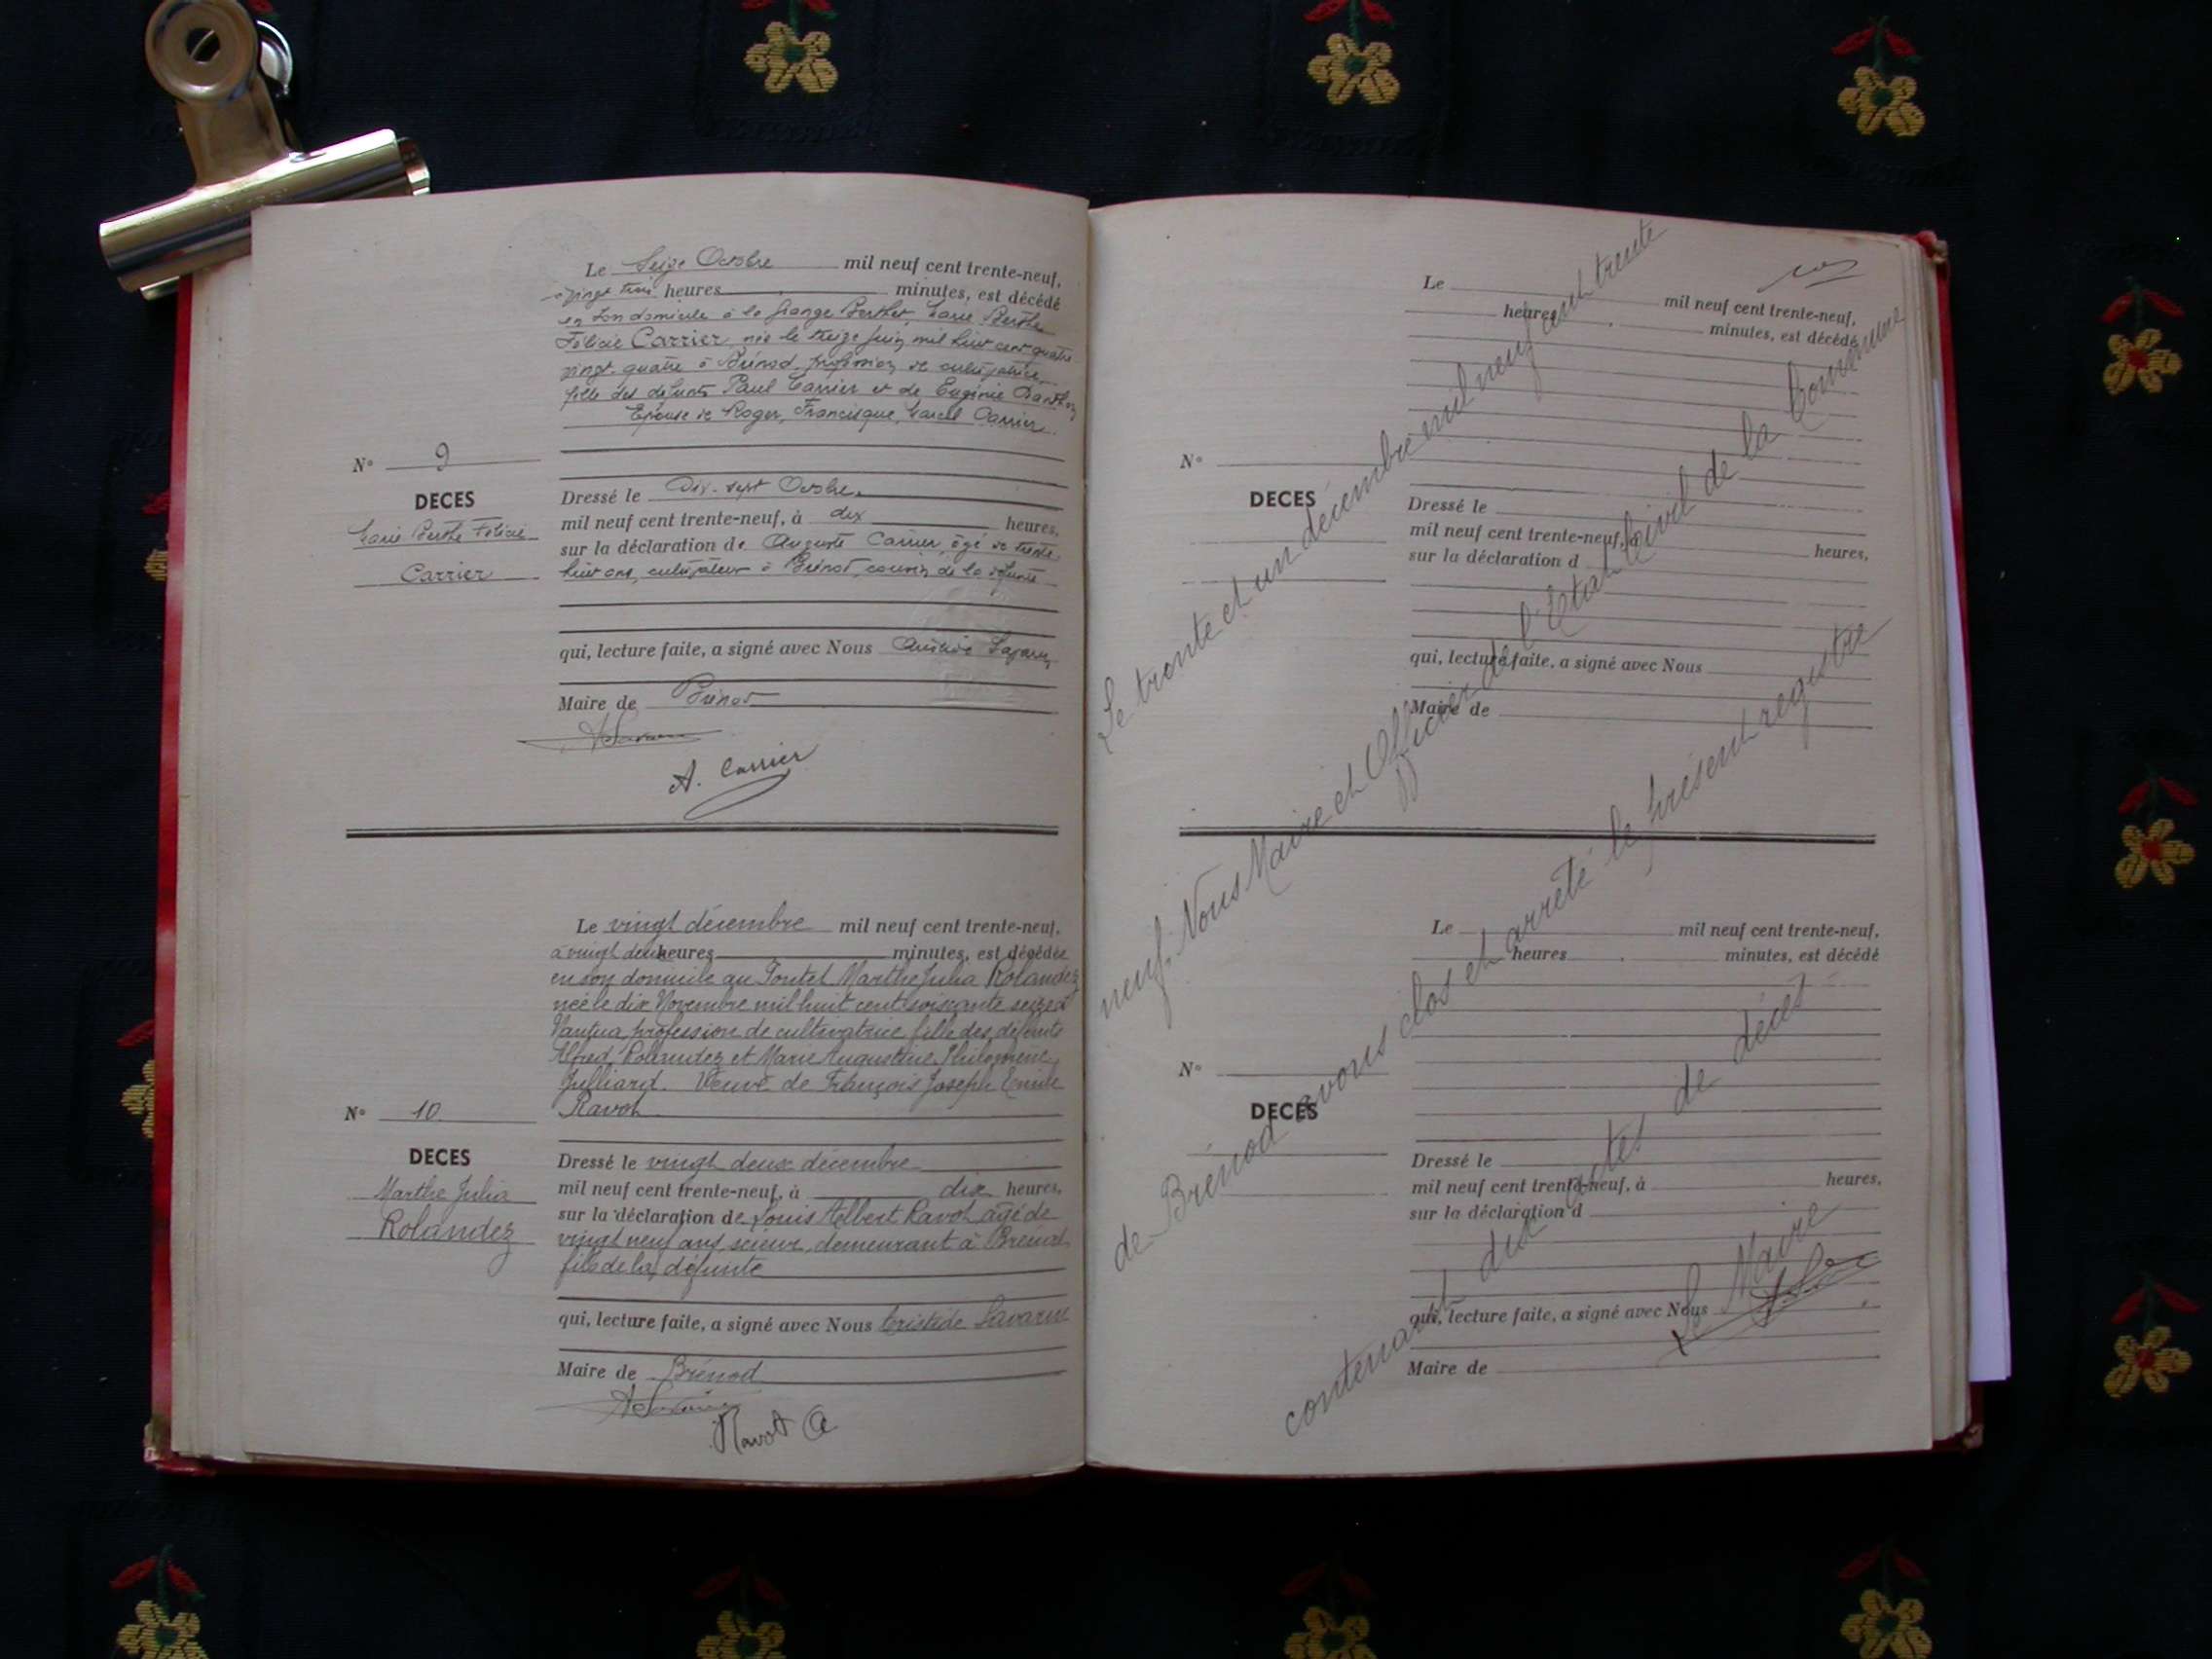 Le Seize Octobre mil neuf cent trente-neuf,
à vingt trois heures minutes, est décédé
en son domicile à la Grange Berthet, Marie Berthe
Félicie Carrier née le treize juin mil huit cent quatre
vingt quatre à Brénod, profession de cultivatrice,
fille des défunts Paul Carrier et de Eugénie
Epouse de Roger, Francisque, Marcel Carrier.
N° 9
DECES
Marie Berthe Félicie
Carrier
Dressé le Dix-sept Octobre,
mil neuf cent trente-neuf, à dix heures,
sur la déclaration de Auguste Carrier âgé de trente
huit ans, cultivateur à Brénod, cousin de la défunte
qui, lecture faite, a signé avec Nous Aristide Savarin
Maire de Brénod
A. Carrier
Le vingt décembre mil neuf cent trente-neuf,
à vingt deux heures minutes, est décédée
en son domicile au Pontet Marthe Julia Rolandez
née le dix Novembre mil huit cent soixante seize à
Nantua, profession de cultivatrice, fille des défunts
Alfred Rolandez et Marie Augustine Philomène
Julliard. Veuve de François Joseph Emile
Ravot
N° 10
DECES
Marthe Julia
Rolandez
Dressé le vingt deux décembre
mil neuf cent trente-neuf, à dix heures,
sur la déclaration de Louis Albert Ravot âgé de
vingt neuf ans, scieur, demeurant à Brénod
fils de la défunte
qui, lecture faite, a signé avec Nous Aristide Savarin
Maire de Brénod
Ravot A
Le mil neuf cent trente-neuf,
heures minutes, est décédé
N°
DECES
Dressé le
mil neuf cent trente-neuf, à heures,
sur la déclaration d
qui, lecture faite, a signé avec Nous
Maire de
Le mil neuf cent trente-neuf,
heures minutes, est décédé
N°
DECES
Dressé le
mil neuf cent trente-neuf, à heures,
sur la déclaration d
qui, lecture faite, a signé avec Nous
Maire de
Le trente et un décembre mil neuf cent trente
neuf, Nous Maire et Officier de l'Etat Civil de la Commune
de Brénod avons clos et arrêté le présent registre
contenant dix actes de décès
Le Maire